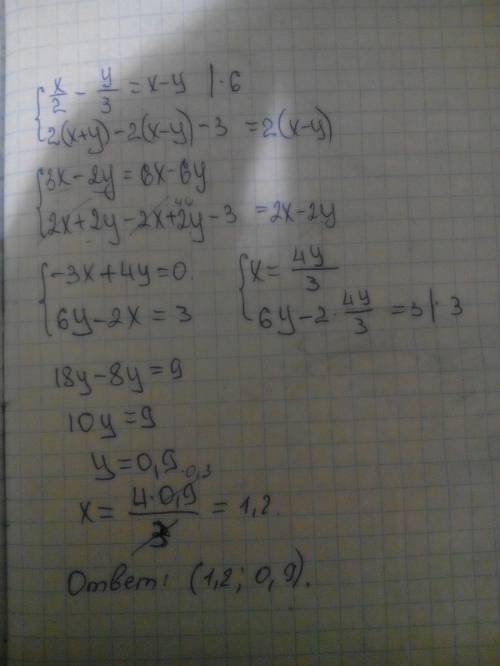 x/2 - y/3 = x-y |·6
2(x+y)-2(x-y)-3 = 2(x-y)
3x-2y=6x-6y
4y
2x+2y-2x+2y-3 = 2x-2y
-3x+4y=0
6y-2x=3
x= 4y/3
6y-2·4y/3 =3|·3
18y-8y=9
10y=9
y=0,9
0,3
x= 4·0,9/3 = 1,2.
Ответ: (1,2; 0,9).